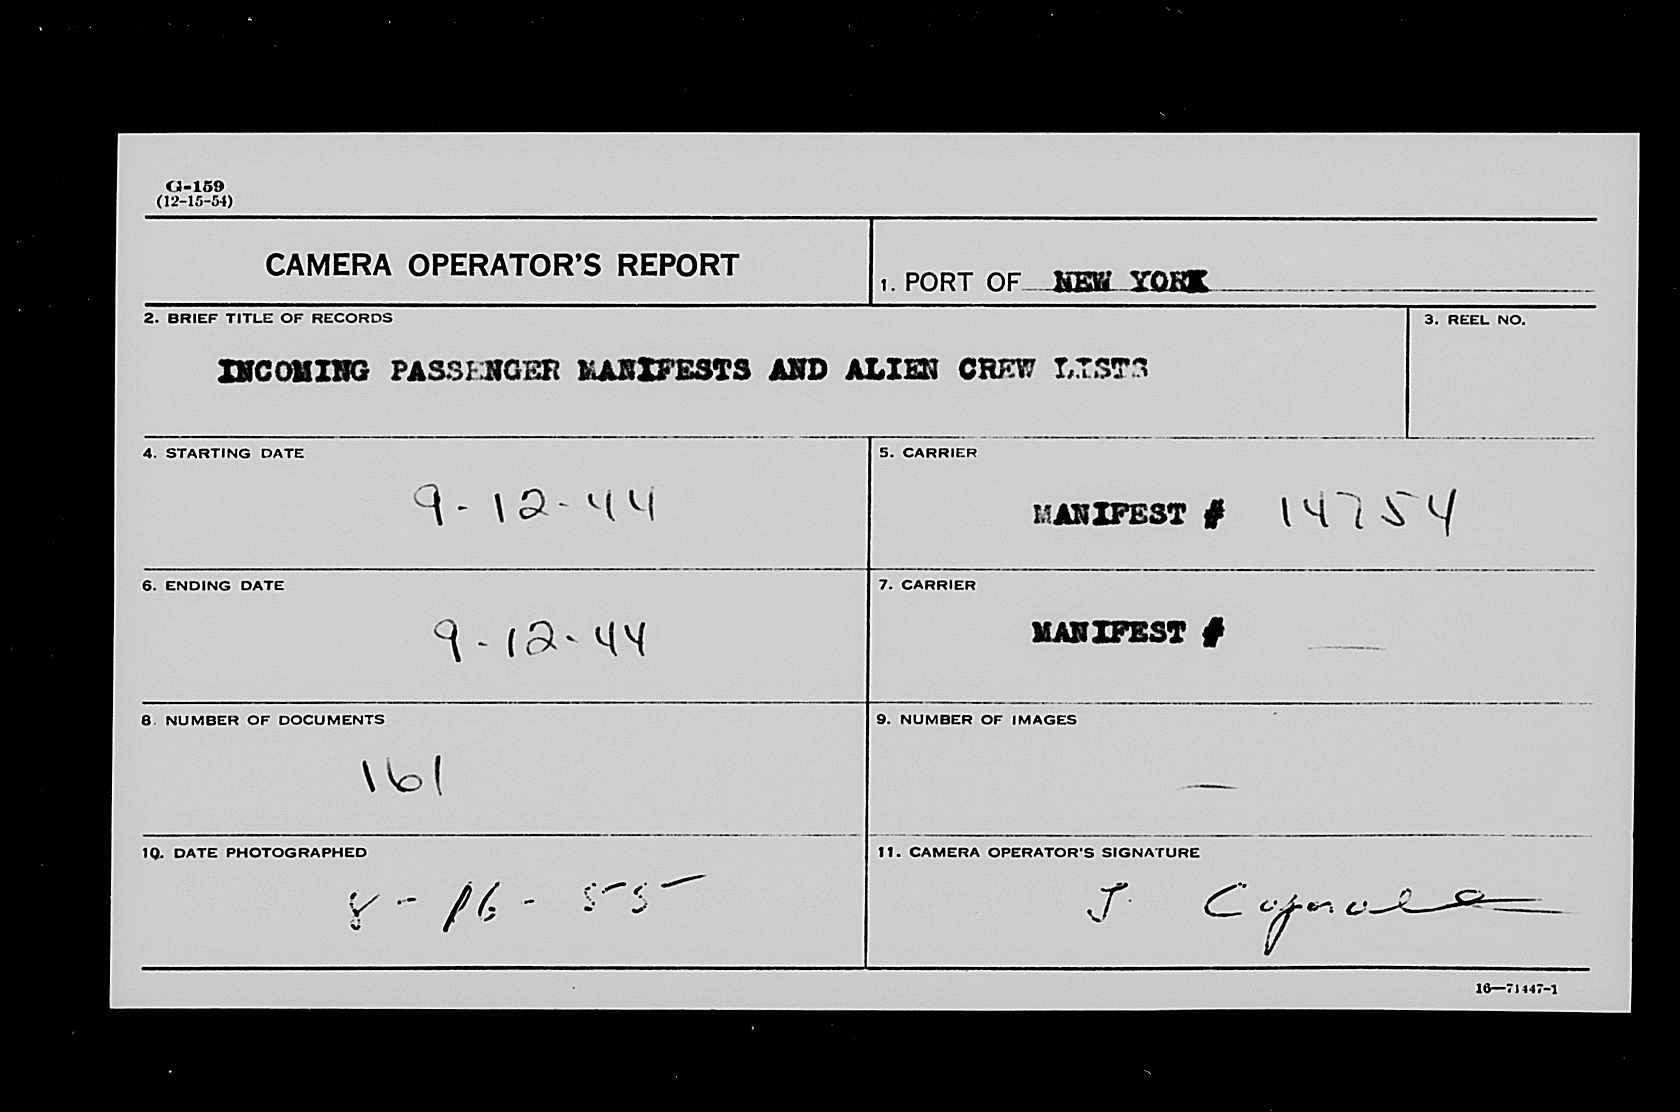 G-159
(12-15-54)
CAMERA OPERATOR'S REPORT
1. PORT OF NEW YORK
2. BRIEF TITLE OF RECORDS
3. REEL NO.
INCOMING PASSENGER MANIFESTS AND ALIEN CREW LISTS
4. STARTING DATE
9-12-44
5. CARRIER
MANIFEST # 14754
6. ENDING DATE
9-12-44
7. CARRIER
MANIFEST # —
8. NUMBER OF DOCUMENTS
161
9. NUMBER OF IMAGES
—
10. DATE PHOTOGRAPHED
8-16-55
11. CAMERA OPERATOR'S SIGNATURE
J.
16—71447-1